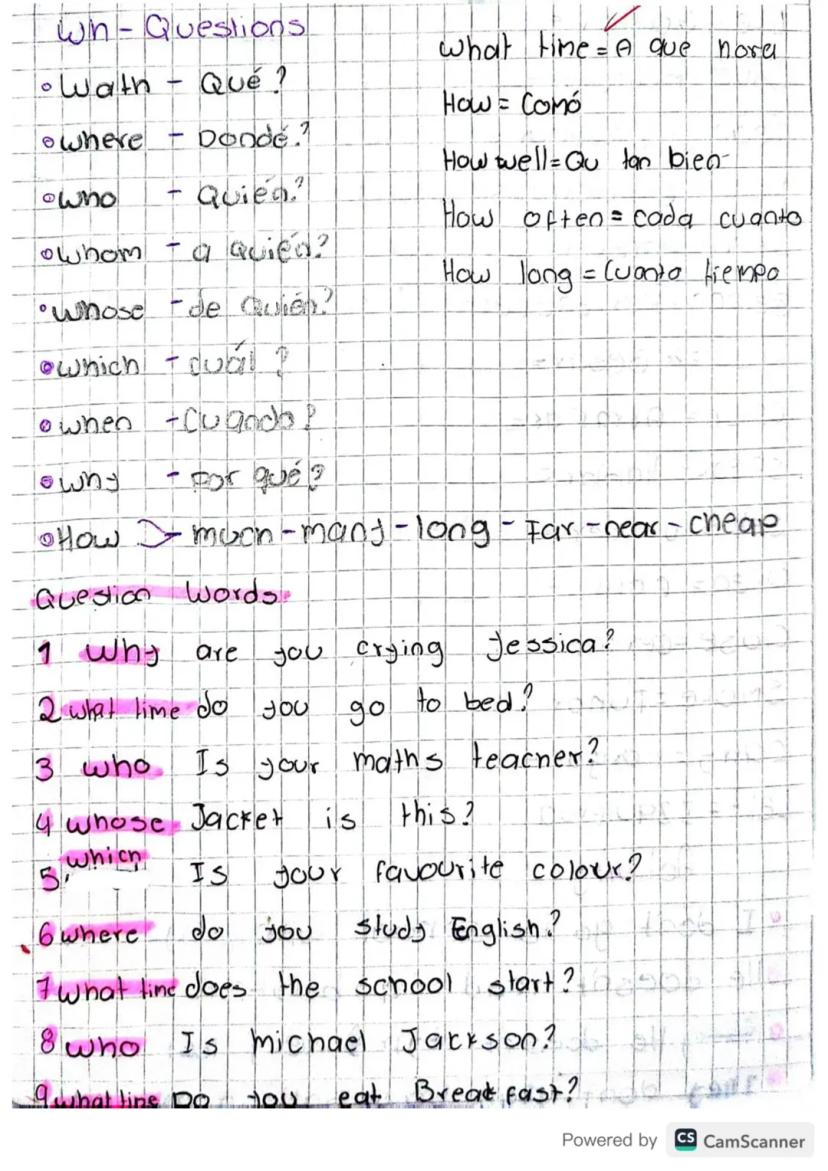 Wh-Questions
Wath - Qué?
where - Dondé?
who - Quién?
whom - a quién?
whose - de Quién?
which - cuál ?
when - Cuando?
why - por qué?
How > much-many-long-Far-near-cheap
what time = A que hora
How = Comó
How well = Qu tan bien
How often = cada cuanto
How long = Cuanto tiempo
Question Words
1 Why are you crying Jessica?
2 what time do you go to bed?
3 who Is your maths teacher?
4 whose Jacket is this?
5. which Is your favourite colour?
6 where do you study English?
7 what time does the school start?
8 who Is Michael Jackson?
9 what time Do you eat Breakfast?
Powered by CS CamScanner